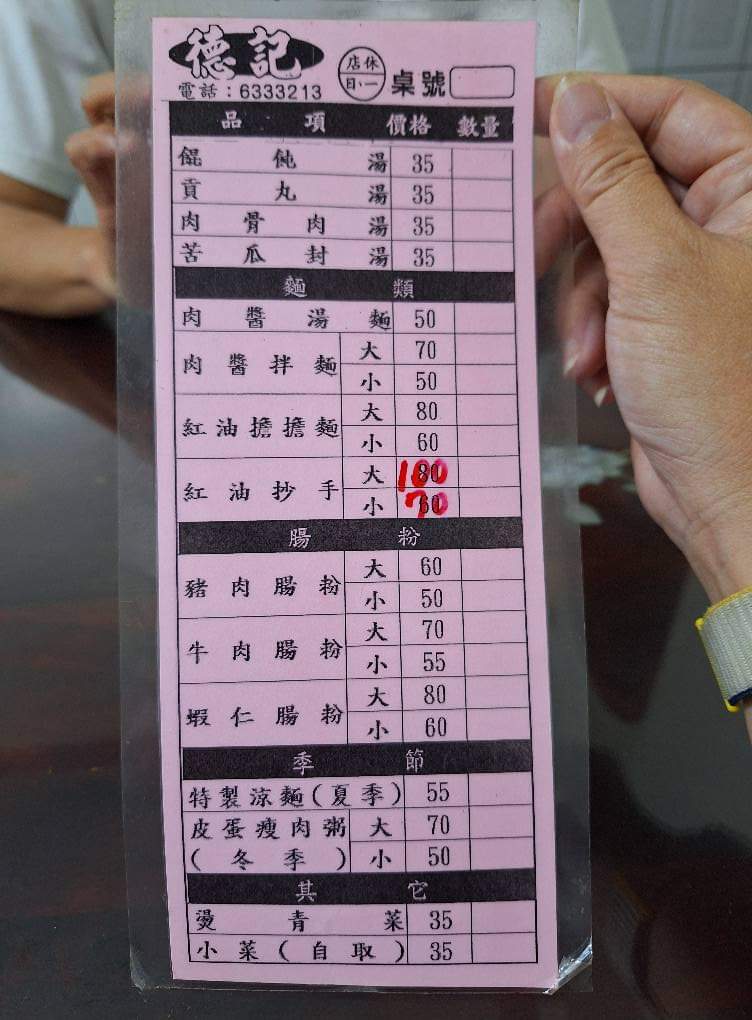 德記
電話：6333213
店休
日·一
桌號
品項 價格 數量
餛飩湯 35
貢丸湯 35
肉骨肉湯 35
苦瓜封湯 35
麵類
肉醬湯麵 50
肉醬拌麵 大 70
小 50
紅油擔擔麵 大 80
小 60
紅油抄手 大 80 100
小 60 70
腸粉
豬肉腸粉 大 60
小 50
牛肉腸粉 大 70
小 55
蝦仁腸粉 大 80
小 60
季節
特製涼麵(夏季) 55
皮蛋瘦肉粥 大 70
(冬季) 小 50
其它
燙青菜 35
小菜(自取) 35